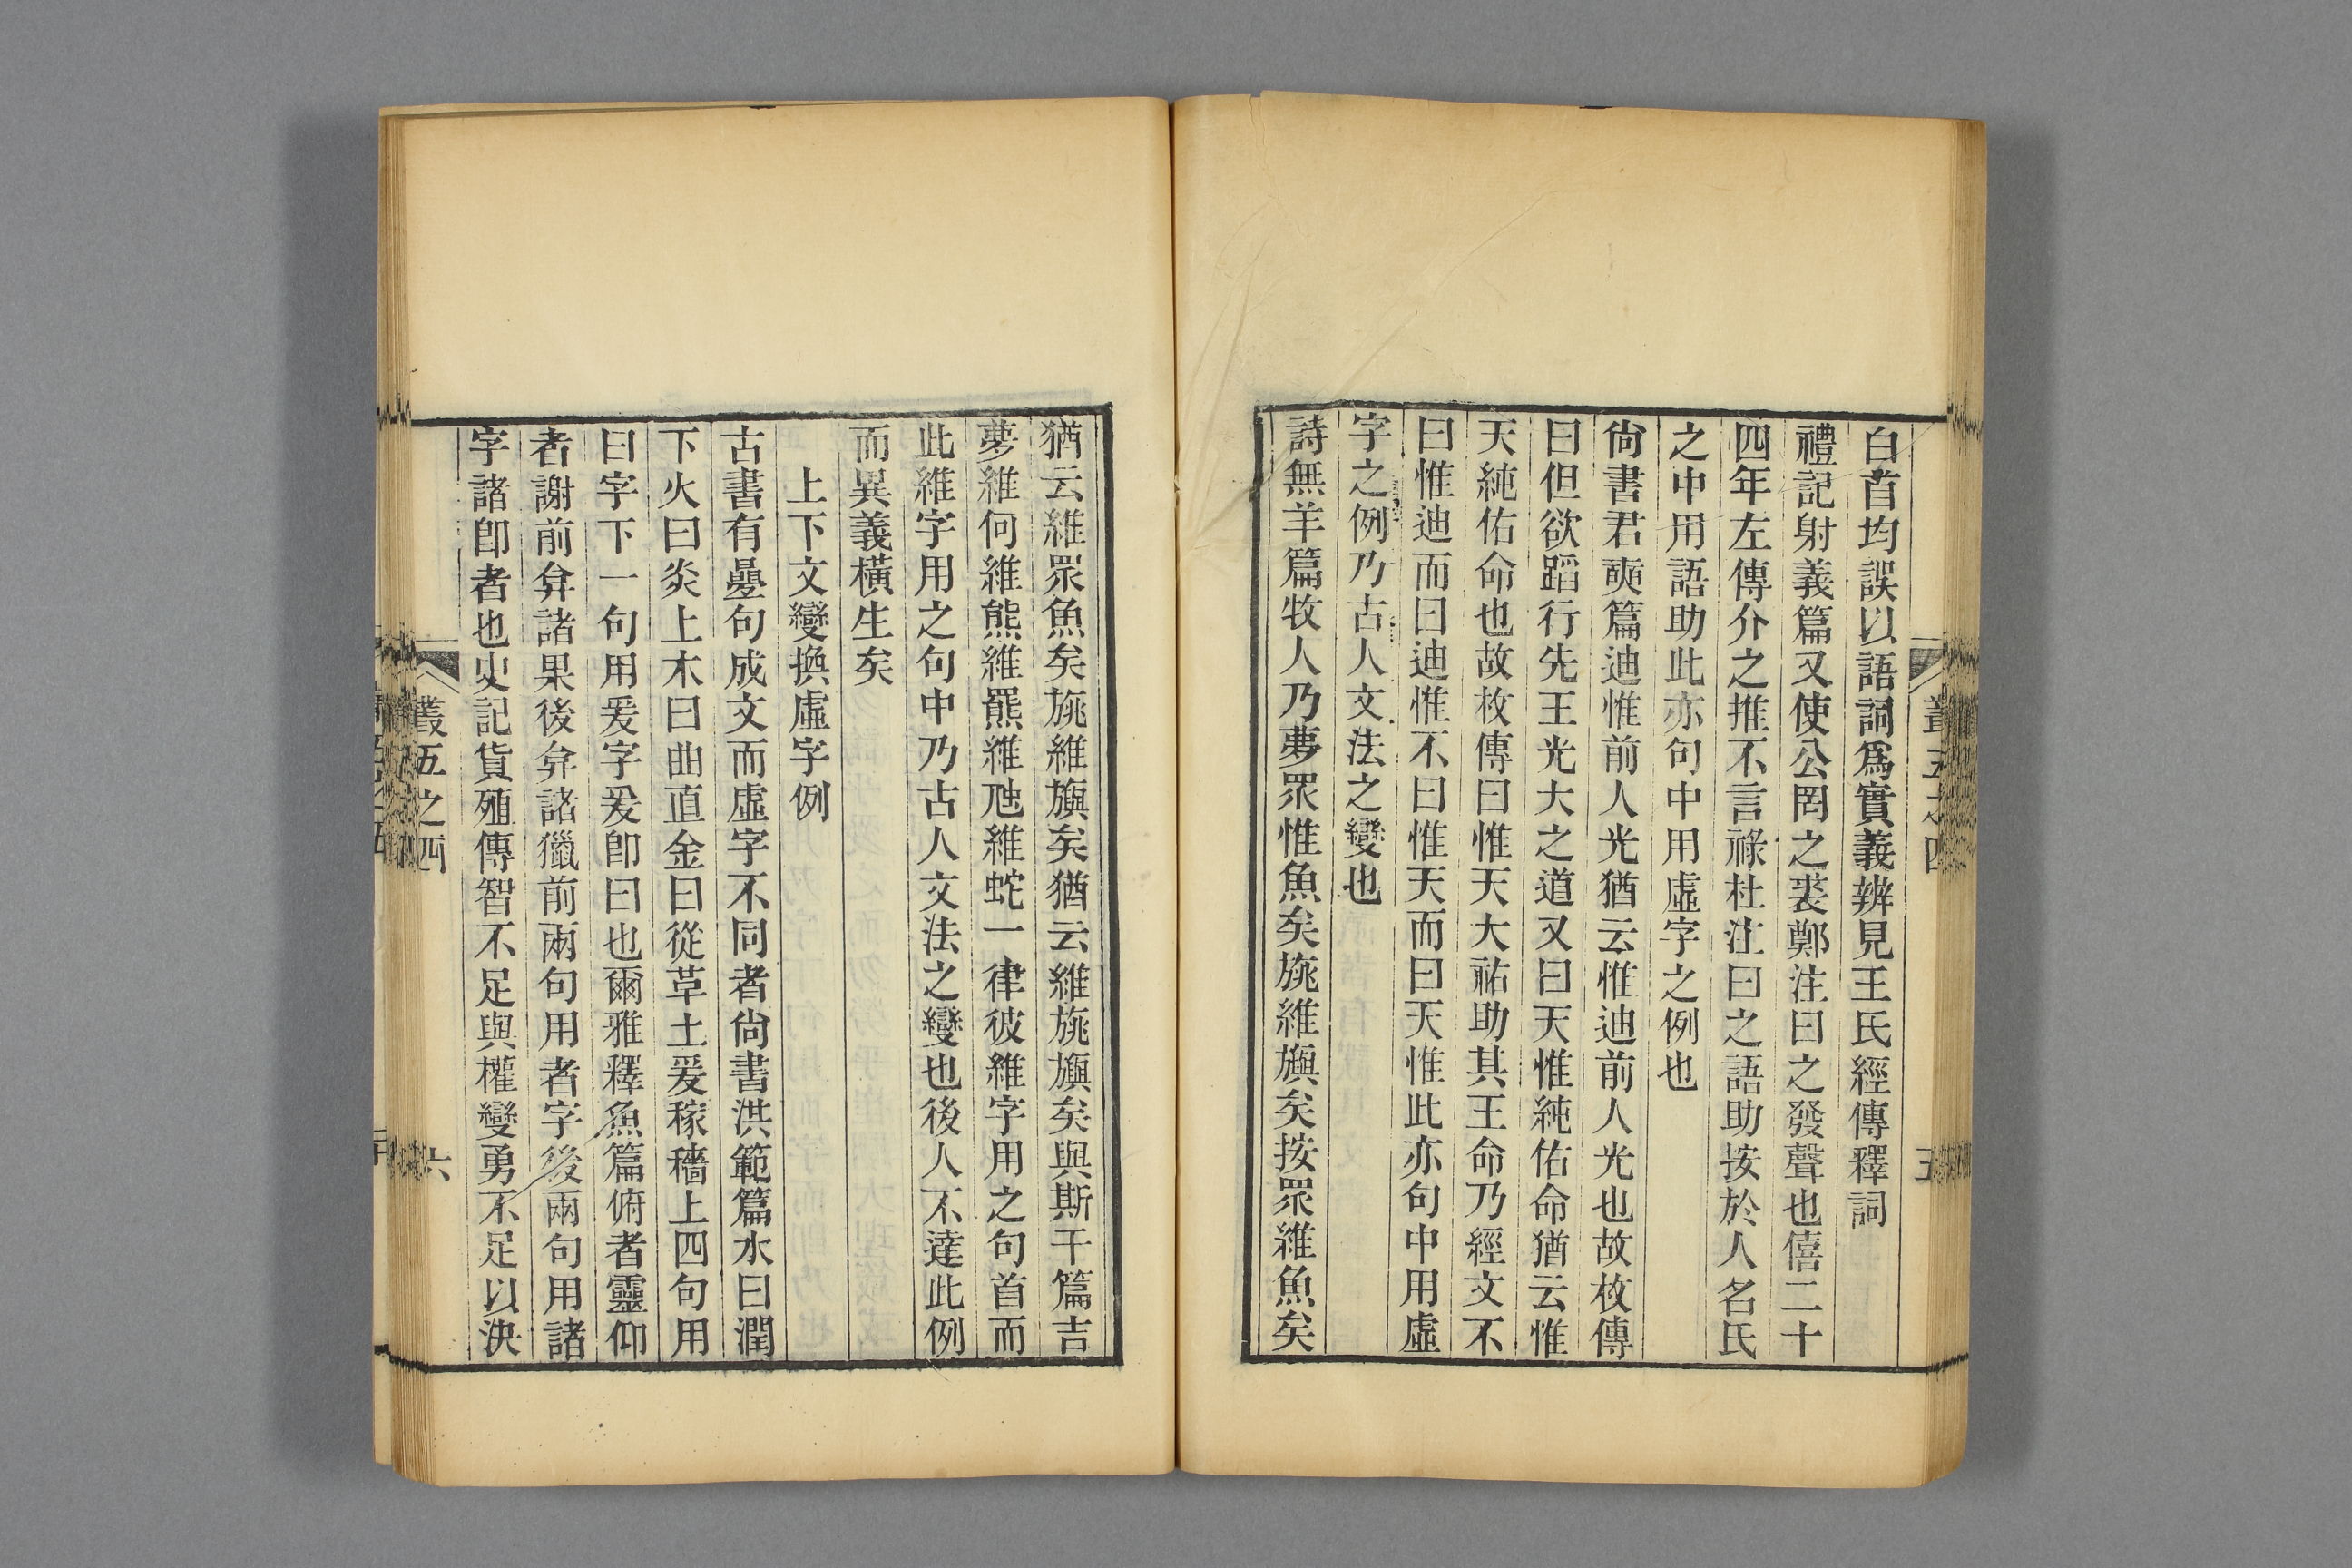 白首均誤以語詞爲實義辨見王氏經傳釋詞
禮記射義篇又使公罔之裘鄭注曰之發聲也僖二十
四年左傳介之推不言祿杜注曰之語助按於人名氏
之中用語助此亦句中用虛字之例也
尙書君奭篇迪惟前人光猶云惟迪前人光也故枚傳
曰但欲蹈行先王光大之道又曰天惟純佑命猶云惟
天純佑命也故枚傳曰惟天大祐助其王命乃經文不
曰惟迪而曰迪惟不曰惟天而曰天惟此亦句中用虛
字之例乃古人文法之變也
詩無羊篇牧人乃夢眾惟魚矣旐維旟矣按眾維魚矣
叢五之四
五
猶云維眾魚矣旐維旟矣猶云維旐旟矣與斯干篇吉
夢維何維熊維羆維虺維蛇一律彼維字用之句首而
此維字用之句中乃古人文法之變也後人不達此例
而異義橫生矣
上下文變換虛字例
古書有疊句成文而虛字不同者尙書洪範篇水曰潤
下火曰炎上木曰曲直金曰從革土爰稼穡上四句用
曰字下一句用爰字爰卽曰也爾雅釋魚篇俯者靈仰
者謝前弇諸果後弇諸獵前兩句用者字後兩句用諸
字諸卽者也史記貨殖傳智不足與權變勇不足以決
叢五之四
六